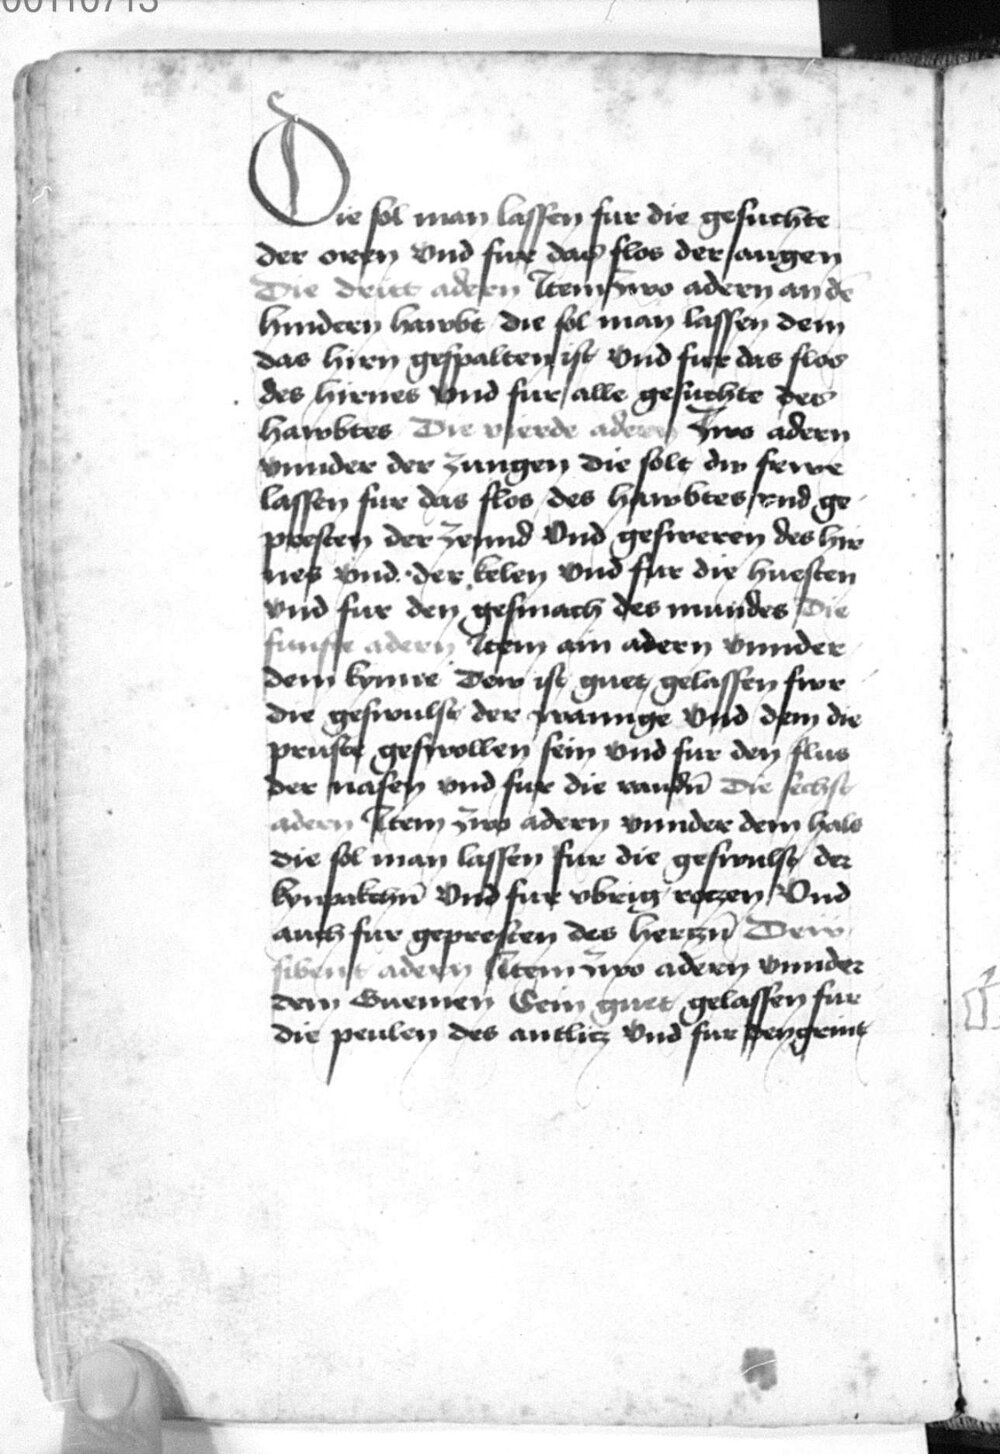 00110713
Die sol man lassen fur die gesuchte
der oren Vnd fur das flos der augen
Die dritt adern Item zwo adern an dē
hindern hawbt die sol man lassen dem
das hirn gespalten ist Vnd fur das flos
des hirnes Vnd fur alle gesuchte des
hawbtes Die vierde adern Zwo adern
vnnder der zungen die solt dw
lassen fur das flos des hawbtes vnd ge
presten der zennd Vnd gesweren des hir
nes vnd der kelen Vnd fur die huesten
vnd fur den gesmach des mundes Die
funfte adern Item ain adern vnnder
dem kynne Dew ist guet gelassen fwr
die geswulst der wannge Vnd dem die
pruste geswollen sein vnd fur den flus
der nasen vnd fur die Die sechst
adern Item zwo adern vnnder dem hals
die sol man lassen fur die geswulst der
Vnd fur vbrig rotzen Vnd
auch fur gepresten des hertzn̄ Dew
sibent adern Item zwo adern vnnder
dem Guemen Sein guet gelassen fur
die peulen des antlitz Vnd fur den grint